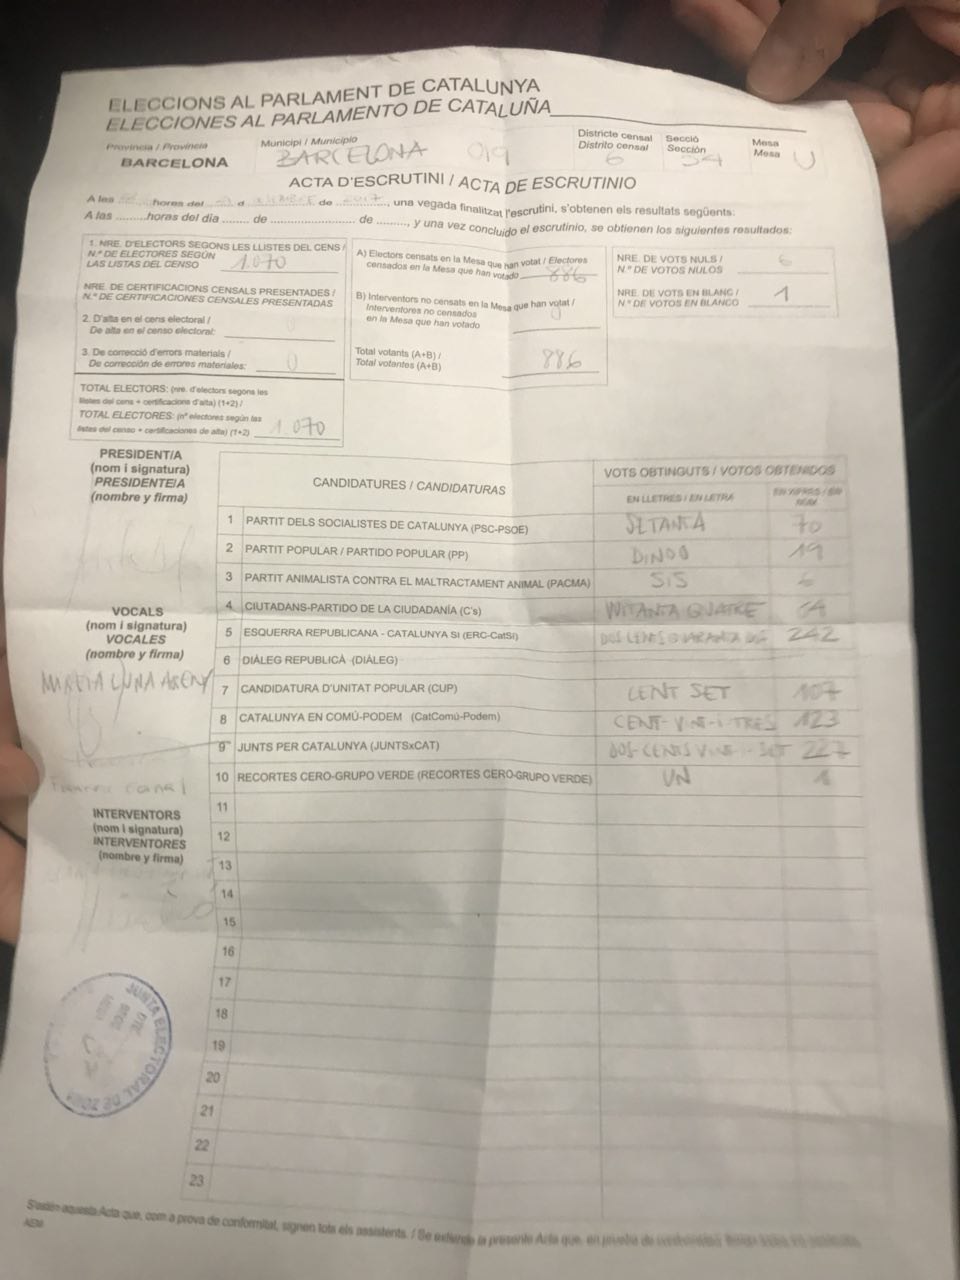 ELECCIONS AL PARLAMENT DE CATALUNYA
ELECCIONES AL PARLAMENTO DE CATALUÑA
Província / Provincia
BARCELONA
Municipi / Municipio
BARCELONA 019
Districte censal
Distrito censal
6
Secció
Sección
54
Mesa
Mesa
U
ACTA D'ESCRUTINI / ACTA DE ESCRUTINIO
A les hores del d de 2017, una vegada finalitzat l'escrutini, s'obtenen els resultats següents:
A las .........horas del día ....... de ....................... de ........, y una vez concluido el escrutinio, se obtienen los siguientes resultados:
1. NRE. D'ELECTORS SEGONS LES LLISTES DEL CENS /
N.º DE ELECTORES SEGÚN
LAS LISTAS DEL CENSO 1.070
NRE. DE CERTIFICACIONS CENSALS PRESENTADES /
N.º DE CERTIFICACIONES CENSALES PRESENTADAS
2. D'alta en el cens electoral /
De alta en el censo electoral: 0
3. De correcció d'errors materials /
De corrección de errores materiales: 0
TOTAL ELECTORS: (nre. d'electors segons les
llistes del cens + certificacions d'alta) (1+2) /
TOTAL ELECTORES: (nº electores según las
listas del censo + certificaciones de alta) (1+2) 1.070
A) Electors censats en la Mesa que han votat / Electores
censados en la Mesa que han votado 886
B) Interventors no censats en la Mesa que han votat /
Interventores no censados
en la Mesa que han votado 0
Total votants (A+B) /
Total votantes (A+B) 886
NRE. DE VOTS NULS /
N.º DE VOTOS NULOS 6
NRE. DE VOTS EN BLANC /
N.º DE VOTOS EN BLANCO 1
PRESIDENT/A
(nom i signatura)
PRESIDENTE/A
(nombre y firma)
VOCALS
(nom i signatura)
VOCALES
(nombre y firma)
MARIA LUNA
INTERVENTORS
(nom i signatura)
INTERVENTORES
(nombre y firma)
CANDIDATURES / CANDIDATURAS
VOTS OBTINGUTS / VOTOS OBTENIDOS
EN LLETRES / EN LETRA
EN XIFRES / EN NÚM.
1 PARTIT DELS SOCIALISTES DE CATALUNYA (PSC-PSOE) SETANTA 70
2 PARTIT POPULAR / PARTIDO POPULAR (PP) DINOU 19
3 PARTIT ANIMALISTA CONTRA EL MALTRACTAMENT ANIMAL (PACMA) SIS 6
4 CIUTADANS-PARTIDO DE LA CIUDADANÍA (C's) WITANTA QUATRE 84
5 ESQUERRA REPUBLICANA - CATALUNYA SI (ERC-CatSí) DOS CENTS QUARANTA DOS 242
6 DIÀLEG REPUBLICÀ (DIÀLEG)
7 CANDIDATURA D'UNITAT POPULAR (CUP) CENT SET 107
8 CATALUNYA EN COMÚ-PODEM (CatComú-Podem) CENT-VINT-I-TRES 123
9 JUNTS PER CATALUNYA (JUNTSxCAT) DOS-CENTS VINT-I-SET 227
10 RECORTES CERO-GRUPO VERDE (RECORTES CERO-GRUPO VERDE) UN 1
11
12
13
14
15
16
17
18
19
20
21
22
23
JUNTA ELECTORAL DE ZONA
S'estén aquesta Acta que, com a prova de conformitat, signen tots els assistents. / Se extiende la presente Acta que, en prueba de conformidad,